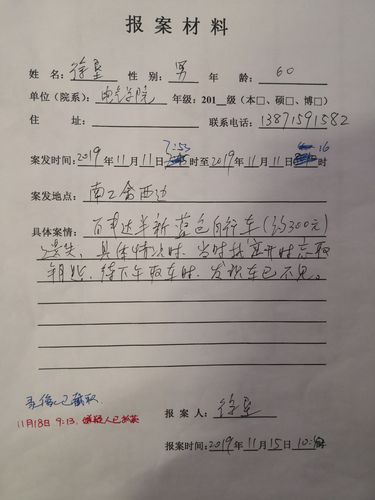 报案材料
姓 名：徐垦 性 别：男 年 龄：60
单位（院系）：电气学院 年级：201_级（本□、硕□、博□）
住 址： 联系电话：13871591582
7:53 16
案发时间：2019年11月11日 时至2019年11月11日 时
案发地点：南二舍西边
具体案情：百事达半新蓝色自行车（约300元）
遗失。具体情况时，当时我离开时忘取
钥匙，待下午取车时，发现车已不见。
录像已截取
11月18日 9:13，嫌疑人已抓获
报 案 人：徐垦
报案时间：2019年11月15日10: 时